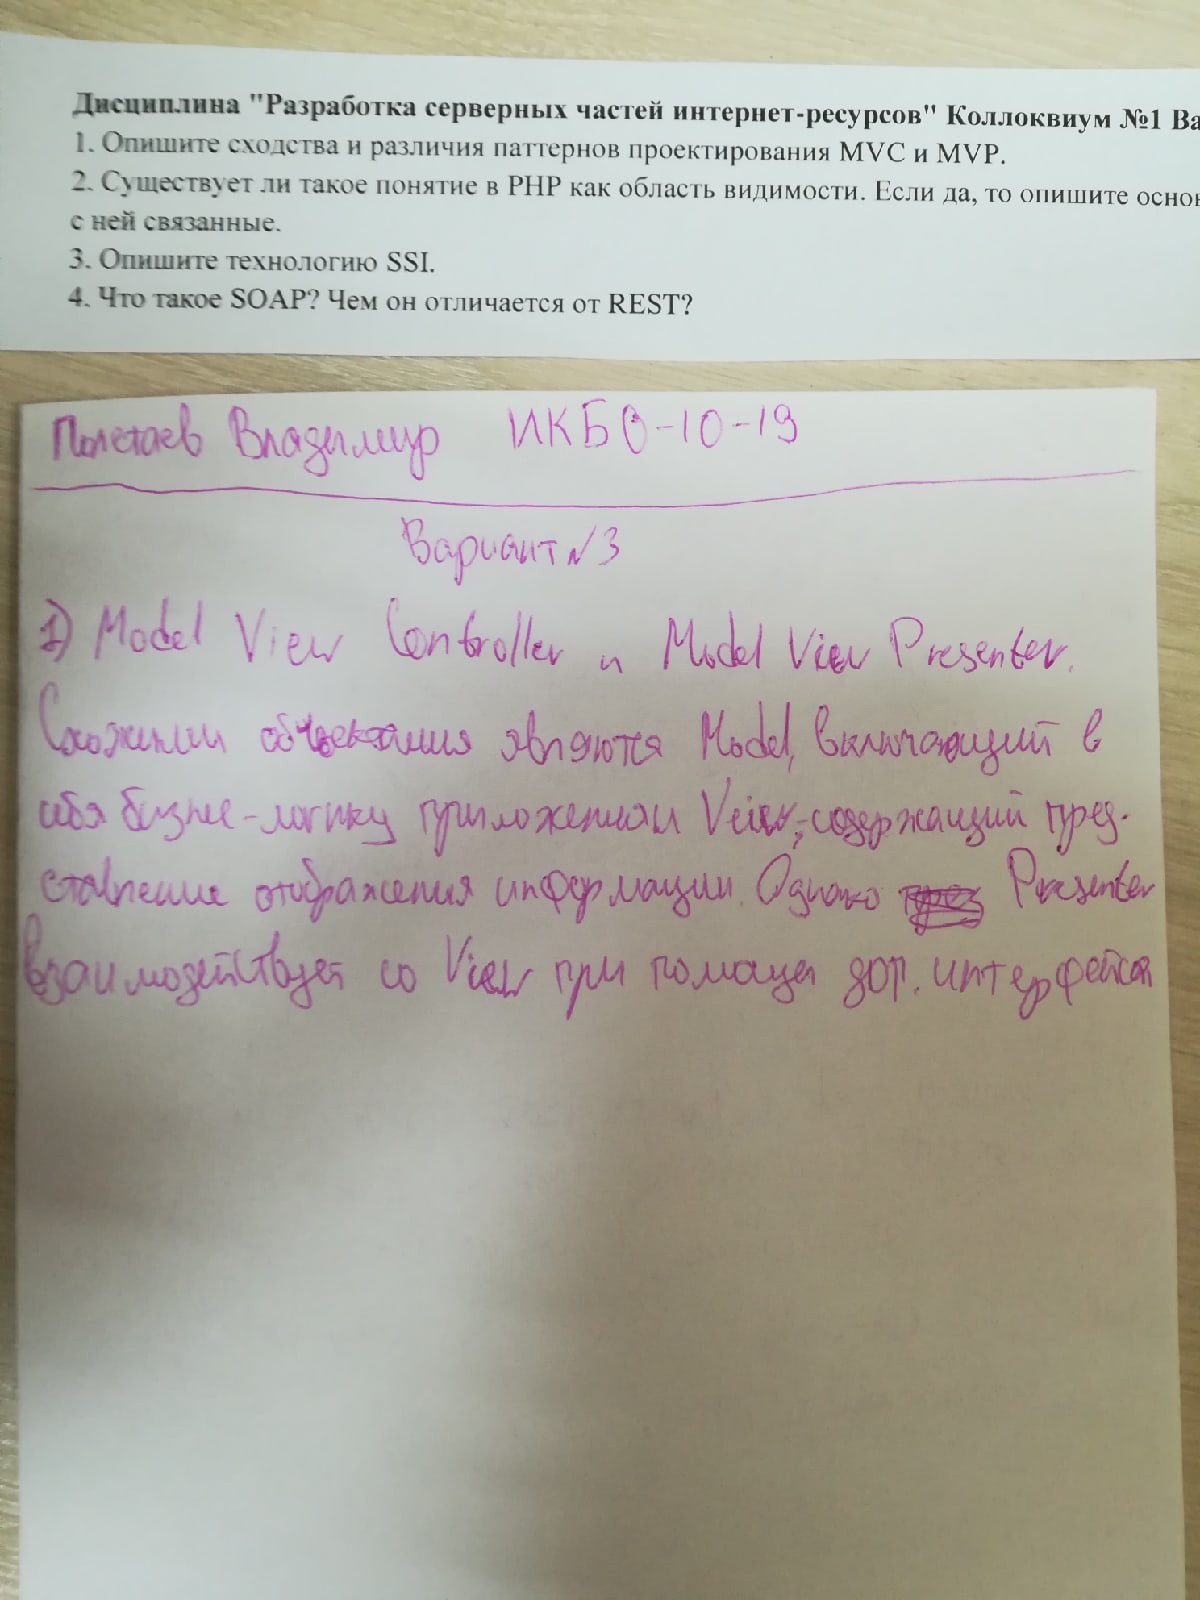 Дисциплина "Разработка серверных частей интернет-ресурсов" Коллоквиум №1 Ва
1. Опишите сходства и различия паттернов проектирования MVC и MVP.
2. Существует ли такое понятие в PHP как область видимости. Если да, то опишите основ
с ней связанные.
3. Опишите технологию SSI.
4. Что такое SOAP? Чем он отличается от REST?
Полетаев Владимир ИКБО-10-19
Вариант №3
1) Model View Controller и Model View Presenter.
Схожими объектами являются Model, включающий в
себя бизнес-логику приложения и View, содержащий пред-
ставление отображения информации. Однако Presenter
взаимодействует со View при помощи доп. интерфейса